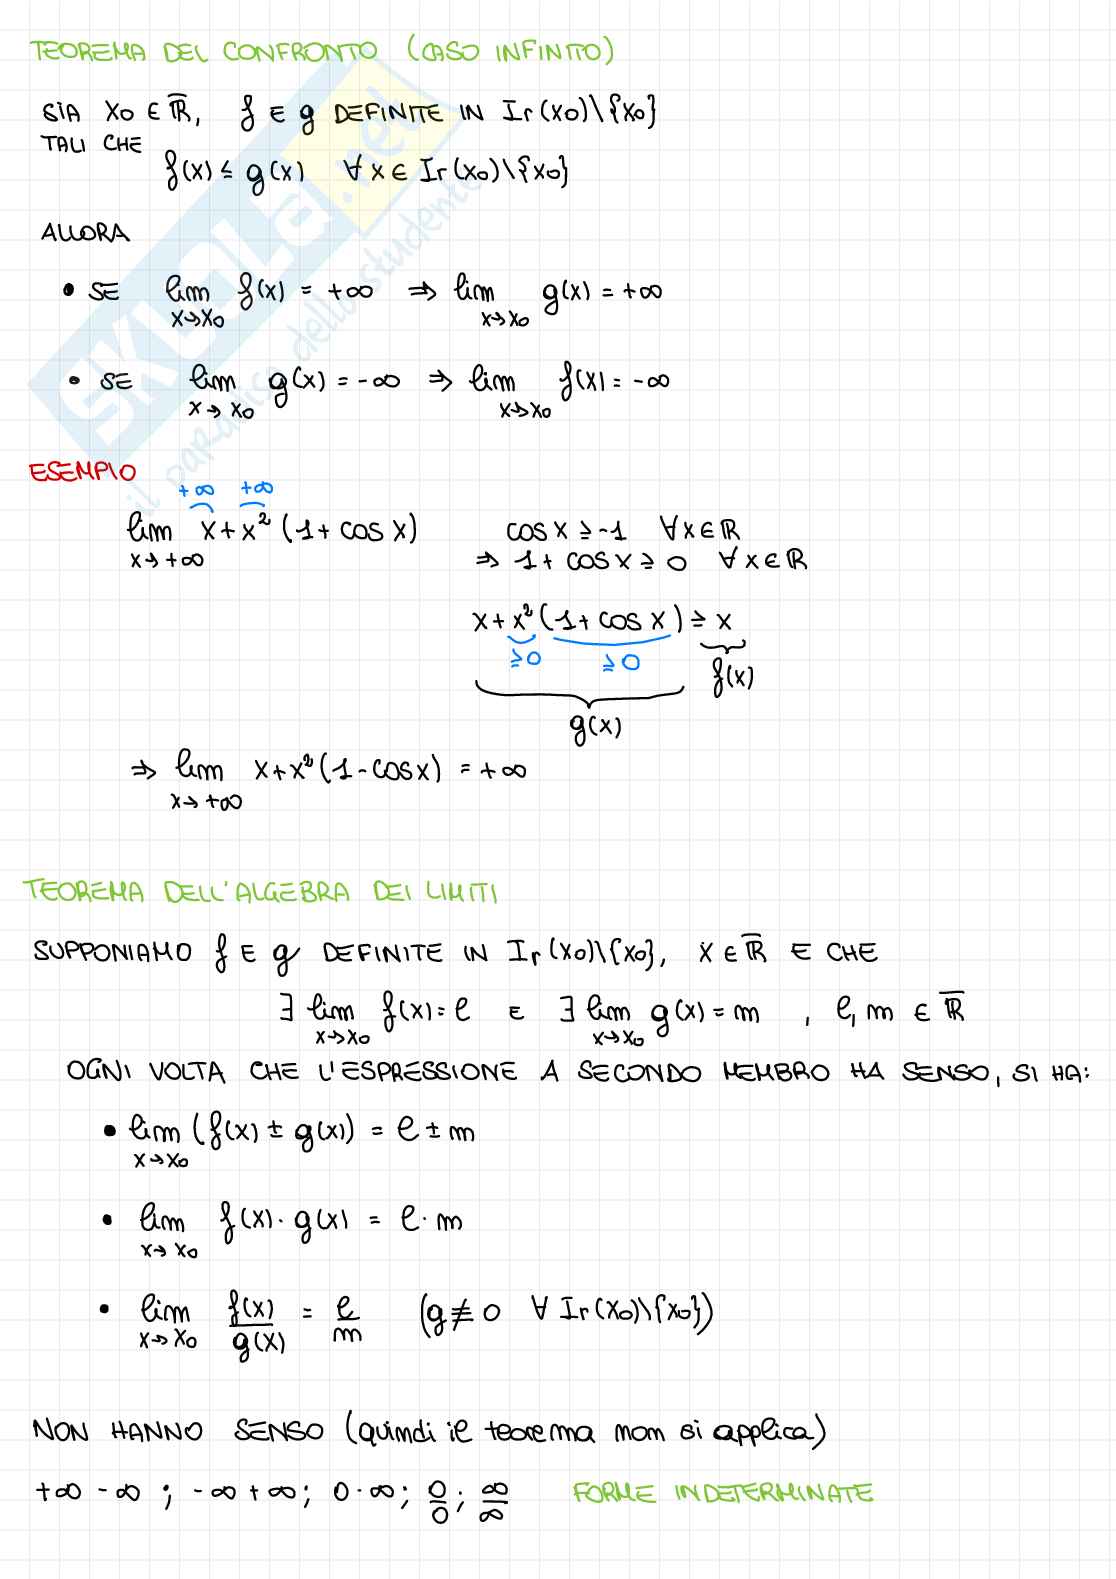 TEOREMA DEL CONFRONTO (CASO INFINITO)
SIA X₀ ∈ R̅, f E g DEFINITE IN Ir(x₀)\{x₀}
TALI CHE
f(x) ≤ g(x) ∀ x ∈ Ir(x₀)\{x₀}
ALLORA
• SE lim f(x) = +∞ ⇒ lim g(x) = +∞
x→x₀ x→x₀
• SE lim g(x) = -∞ ⇒ lim f(x) = -∞
x→x₀ x→x₀
SKUOLA.net
il paradiso dello studente
ESEMPIO
+∞ +∞
lim x + x² (1 + cos x) cos x ≥ -1 ∀ x ∈ R
x→+∞ ⇒ 1 + cos x ≥ 0 ∀ x ∈ R
x + x² (1 + cos x) ≥ x
≥0 ≥0 f(x)
g(x)
⇒ lim x + x² (1 - cos x) = +∞
x→+∞
TEOREMA DELL'ALGEBRA DEI LIMITI
SUPPONIAMO f E g DEFINITE IN Ir(x₀)\{x₀}, x ∈ R̅ E CHE
∃ lim f(x) = l E ∃ lim g(x) = m , l, m ∈ R̅
x→x₀ x→x₀
OGNI VOLTA CHE L'ESPRESSIONE A SECONDO MEMBRO HA SENSO, SI HA:
• lim (f(x) ± g(x)) = l ± m
x→x₀
• lim f(x) · g(x) = l · m
x→x₀
• lim f(x)/g(x) = l/m (g ≢ 0 ∀ Ir(x₀)\{x₀})
x→x₀
NON HANNO SENSO (quindi il teorema non si applica)
+∞ -∞ ; -∞ +∞ ; 0·∞ ; 0/0 ; ∞/∞ FORME INDETERMINATE